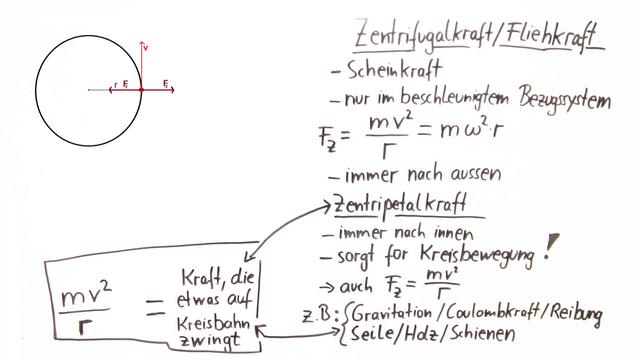 Zentrifugalkraft/Fliehkraft
- Scheinkraft
- nur im beschleunigtem Bezugssystem
F_z = mv²/r = mω²·r
- immer nach aussen
Zentripetalkraft
- immer nach innen
- sorgt for Kreisbewegung!
→ auch F_z = mv²/r
z.B: Gravitation/Coulombkraft/Reibung
Seile/Holz/Schienen
mv²/r = Kraft, die
etwas auf
Kreisbahn
zwingt
v
r F F